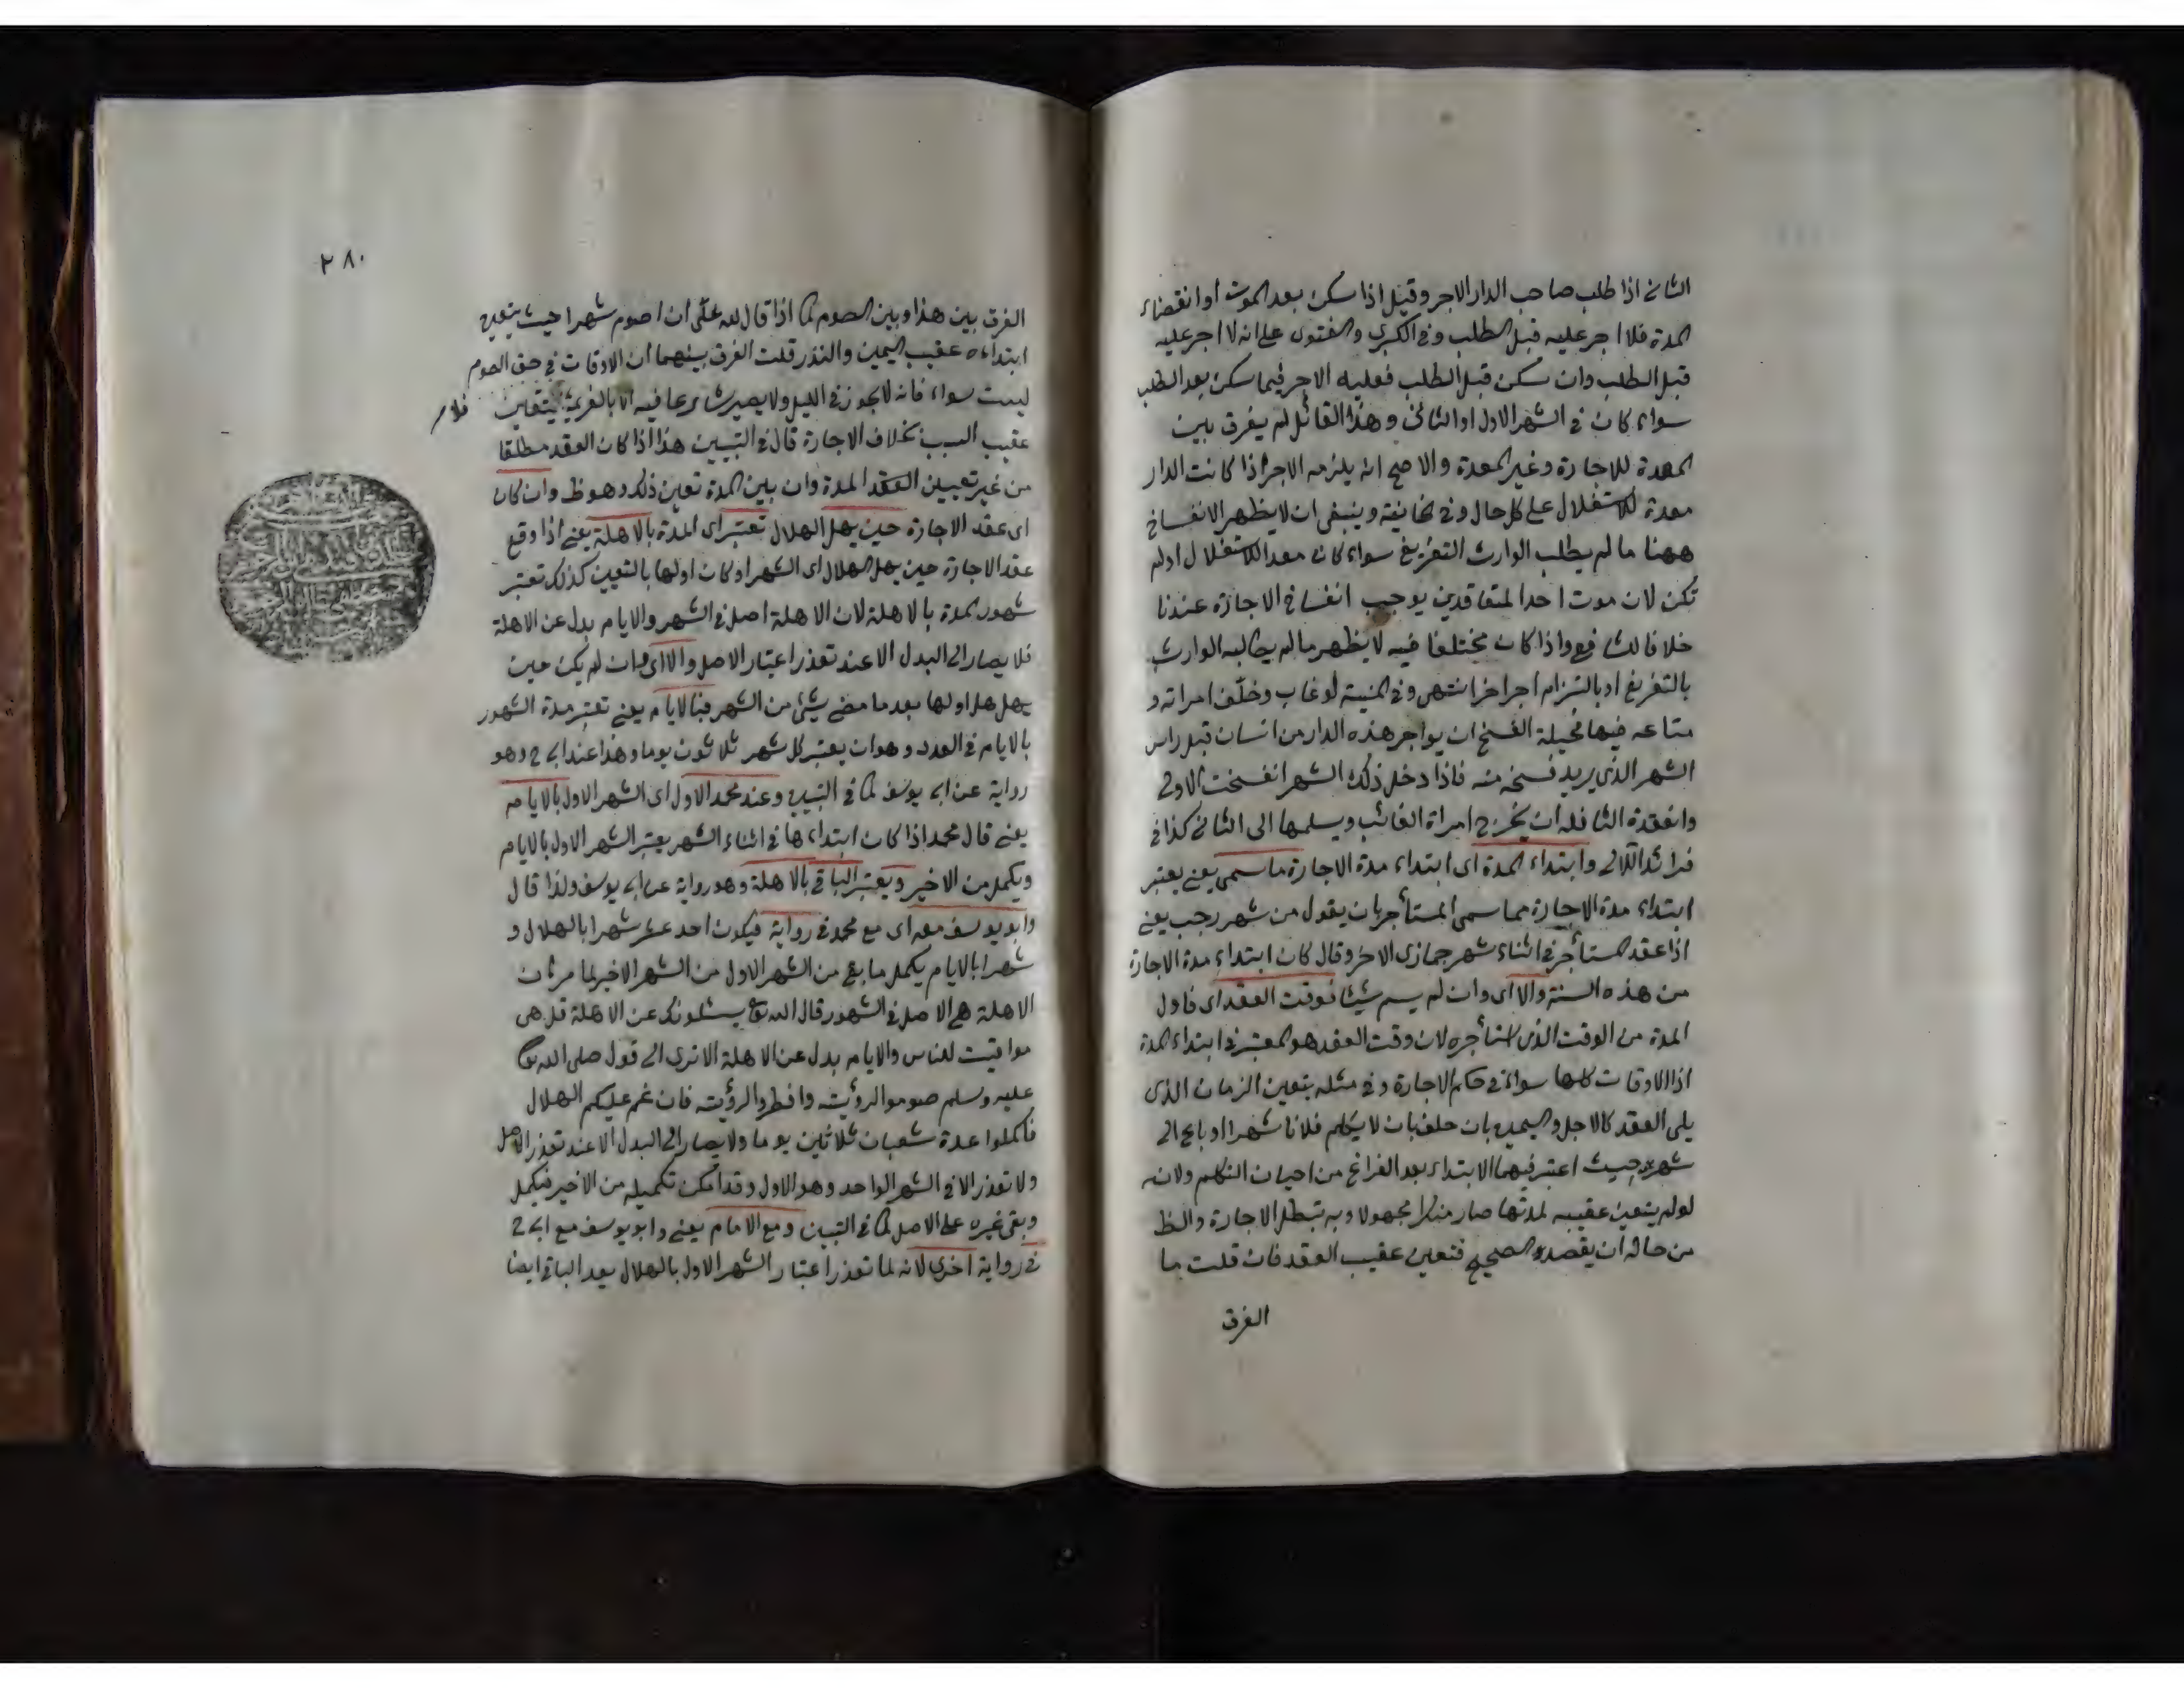 الثانى اذا طلب صاحب الدار الاجر وقيل اذا سكن بعد الموت او انقضاء
المدة فلا اجر عليه قبل الطلب وفى الكبرى والفتوى على انه لا اجر عليه
قبل الطلب وان سكن قبل الطلب فعليه الاجر فيما سكن بعد الطلب
سواء كان فى الشهر الاول او الثانى وهذا القائل لم يفرق بين
المعدة للاجارة وغير المعدة والاصح انه يلزمه الاجر اذا كانت الدار
معدة للاستغلال على كل حال وفى الخانية وينبغى ان لا يظهر الانفساخ
ههنا ما لم يطلب الوارث التفريغ سواء كان معد للاستغلال او لم
تكن لان موت احد المتعاقدين يوجب انفساخ الاجازة عندنا
خلافا للشافع واذا كان مختلفا فيه لا يظهر مالم يطالبه الوارث
بالتفريغ او بالتزام اجر اخر انتهى وفى المنية لو غاب وخلّف امراته و
متاعه فيها فحيلة الفسخ ان يواجر هذه الدار من انسان قبل راس
الشهر الذى يريد فسخه منه فاذا دخل ذلك الشهر انفسخت الاولى
وانعقدة الثا فله ان يخرج امراة الغائب ويسلمها الى الثانى كذا فى
فرائد اللالى وابتداء المدة اى ابتداء مدة الاجارة ما سمى يعنى يعتبر
ابتداء مدة الاجارة مما سمى المستأجر بان يقول من شهر رجب يعنى
اذا عقد المستأجر فى اثناء شهر جمازى الاخر وقال كان ابتداء مدة الاجارة
من هذه السنة والا اى وان لم يسم شيئا فوقت العقد اى فاول
المدة من الوقت الذى استأجره لان وقت العقد هو المعتبر فى ابتداء المدة
اذا الاوقات كلها سواء فى حكم الاجارة وفى مثله يتعين الزمان الذى
يلى العقد كالاجل واليمين بان حلف بان لا يكلم فلانا شهرا او باع الى
شهر حيث اعتبر فيهما الابتداء بعد الفراغ من احيان التكلم ولانه
لو لم يتعين عقيبه لمدتها صار منكرا مجهولا وبه تبطل الاجارة والظ
من حاله ان يقصد الصحيح فتعين عقيب العقد فان قلت ما
الفرق
٢٨٠
الفرق بين هذا وبين الصوم كما اذا قال لله علىّ ان اصوم شهرا حيث يتعين
ابتداءه عقيب اليمين والنذر قلت الفرق بينهما ان الاوقات فى حق الصوم
ليست سواء فانه لا يجوز فى الليل ولا يصير شارعا فيه الا بالعزيمة يتعين
فلا
عقيب السبب بخلاف الاجارة قال فى التبيين هذا اذا كان العقد مطلقا
من غير تعيين العقد المدة وان بين المدة تعين ذلك وهو ظ وان كان
اى عقد الاجارة حين يهل الهلال تعتبر اى المدة بالاهلة يعنى اذا وقع
عقد الاجارة حين يهل الهلال اى الشهر او كان اولها بالتعيين كذلك تعتبر
شهور المدة بالاهلة لان الاهلة اصل فى الشهر والايام بدل عن الاهلة
فلا يصار الى البدل الا عند تعذر اعتبار الاصل والا اى وان لم يكن حين
يهل هلا اولها بعد ما مضى شئ من الشهر فبالايام يعنى تعتبر مدة الشهور
بالايام فى العدد وهو ان يعتبر كل شهر ثلاثون يوما وهذا عند ابى ح وهو
رواية عن ابى يوسف كما فى التبيين وعند محمد الاول اى الشهر الاول بالايام
يعنى قال محمد اذا كان ابتداءها فى اثناء الشهر يعتبر الشهر الاول بالايام
ويكمل من الاخير ويعتبر الباقى بالاهلة وهو رواية عن ابى يوسف ولذا قال
وابو يوسف معه اى مع محمد فى رواية فيكون احد عشر شهرا بالهلال و
شهرا بالايام يكمل ما بقى من الشهر الاول من الشهر الاخير لما مر ان
الاهلة هى الاصل فى الشهور قال الله تع يسئلونك عن الاهلة قل هى
مواقيت للناس والايام بدل عن الاهلة الا ترى الى قول صلى الله تع
عليه وسلم صوموا لرؤيته وافطروا لرؤيته فان غم عليكم الهلال
فاكملوا عدة شعبان ثلاثين يوما ولا يصار الى البدل الا عند تعذر الاصل
ولا تعذر الا فى الشهر الواحد وهو الاول وقد امكن تكميله من الاخير فيكمل
وبقى غيره على الاصل كما فى التبيين ومع الامام يعنى وابو يوسف مع ابى ح
فى رواية اخرى لانه لما تعذر اعتبار الشهر الاول بالهلال يعد الباقى ايضا